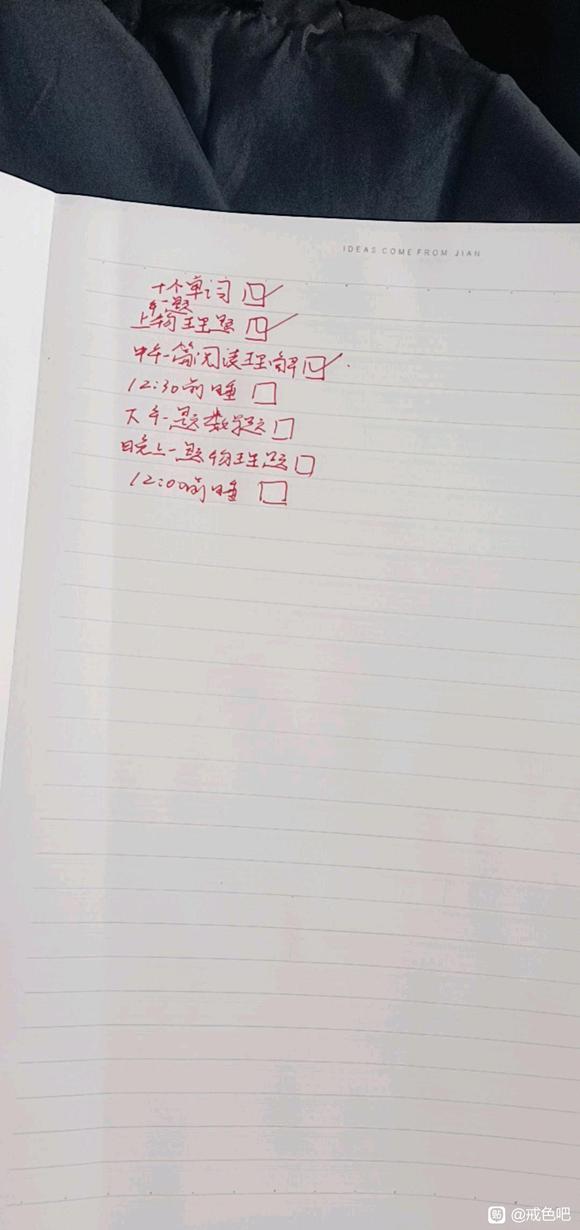 IDEAS COME FROM JIAN
十个单词
上午一题物理题
中午一篇阅读理解
12:30前睡
下午一题数学题
晚上一题物理题
12:00前睡
贴 @戒色吧